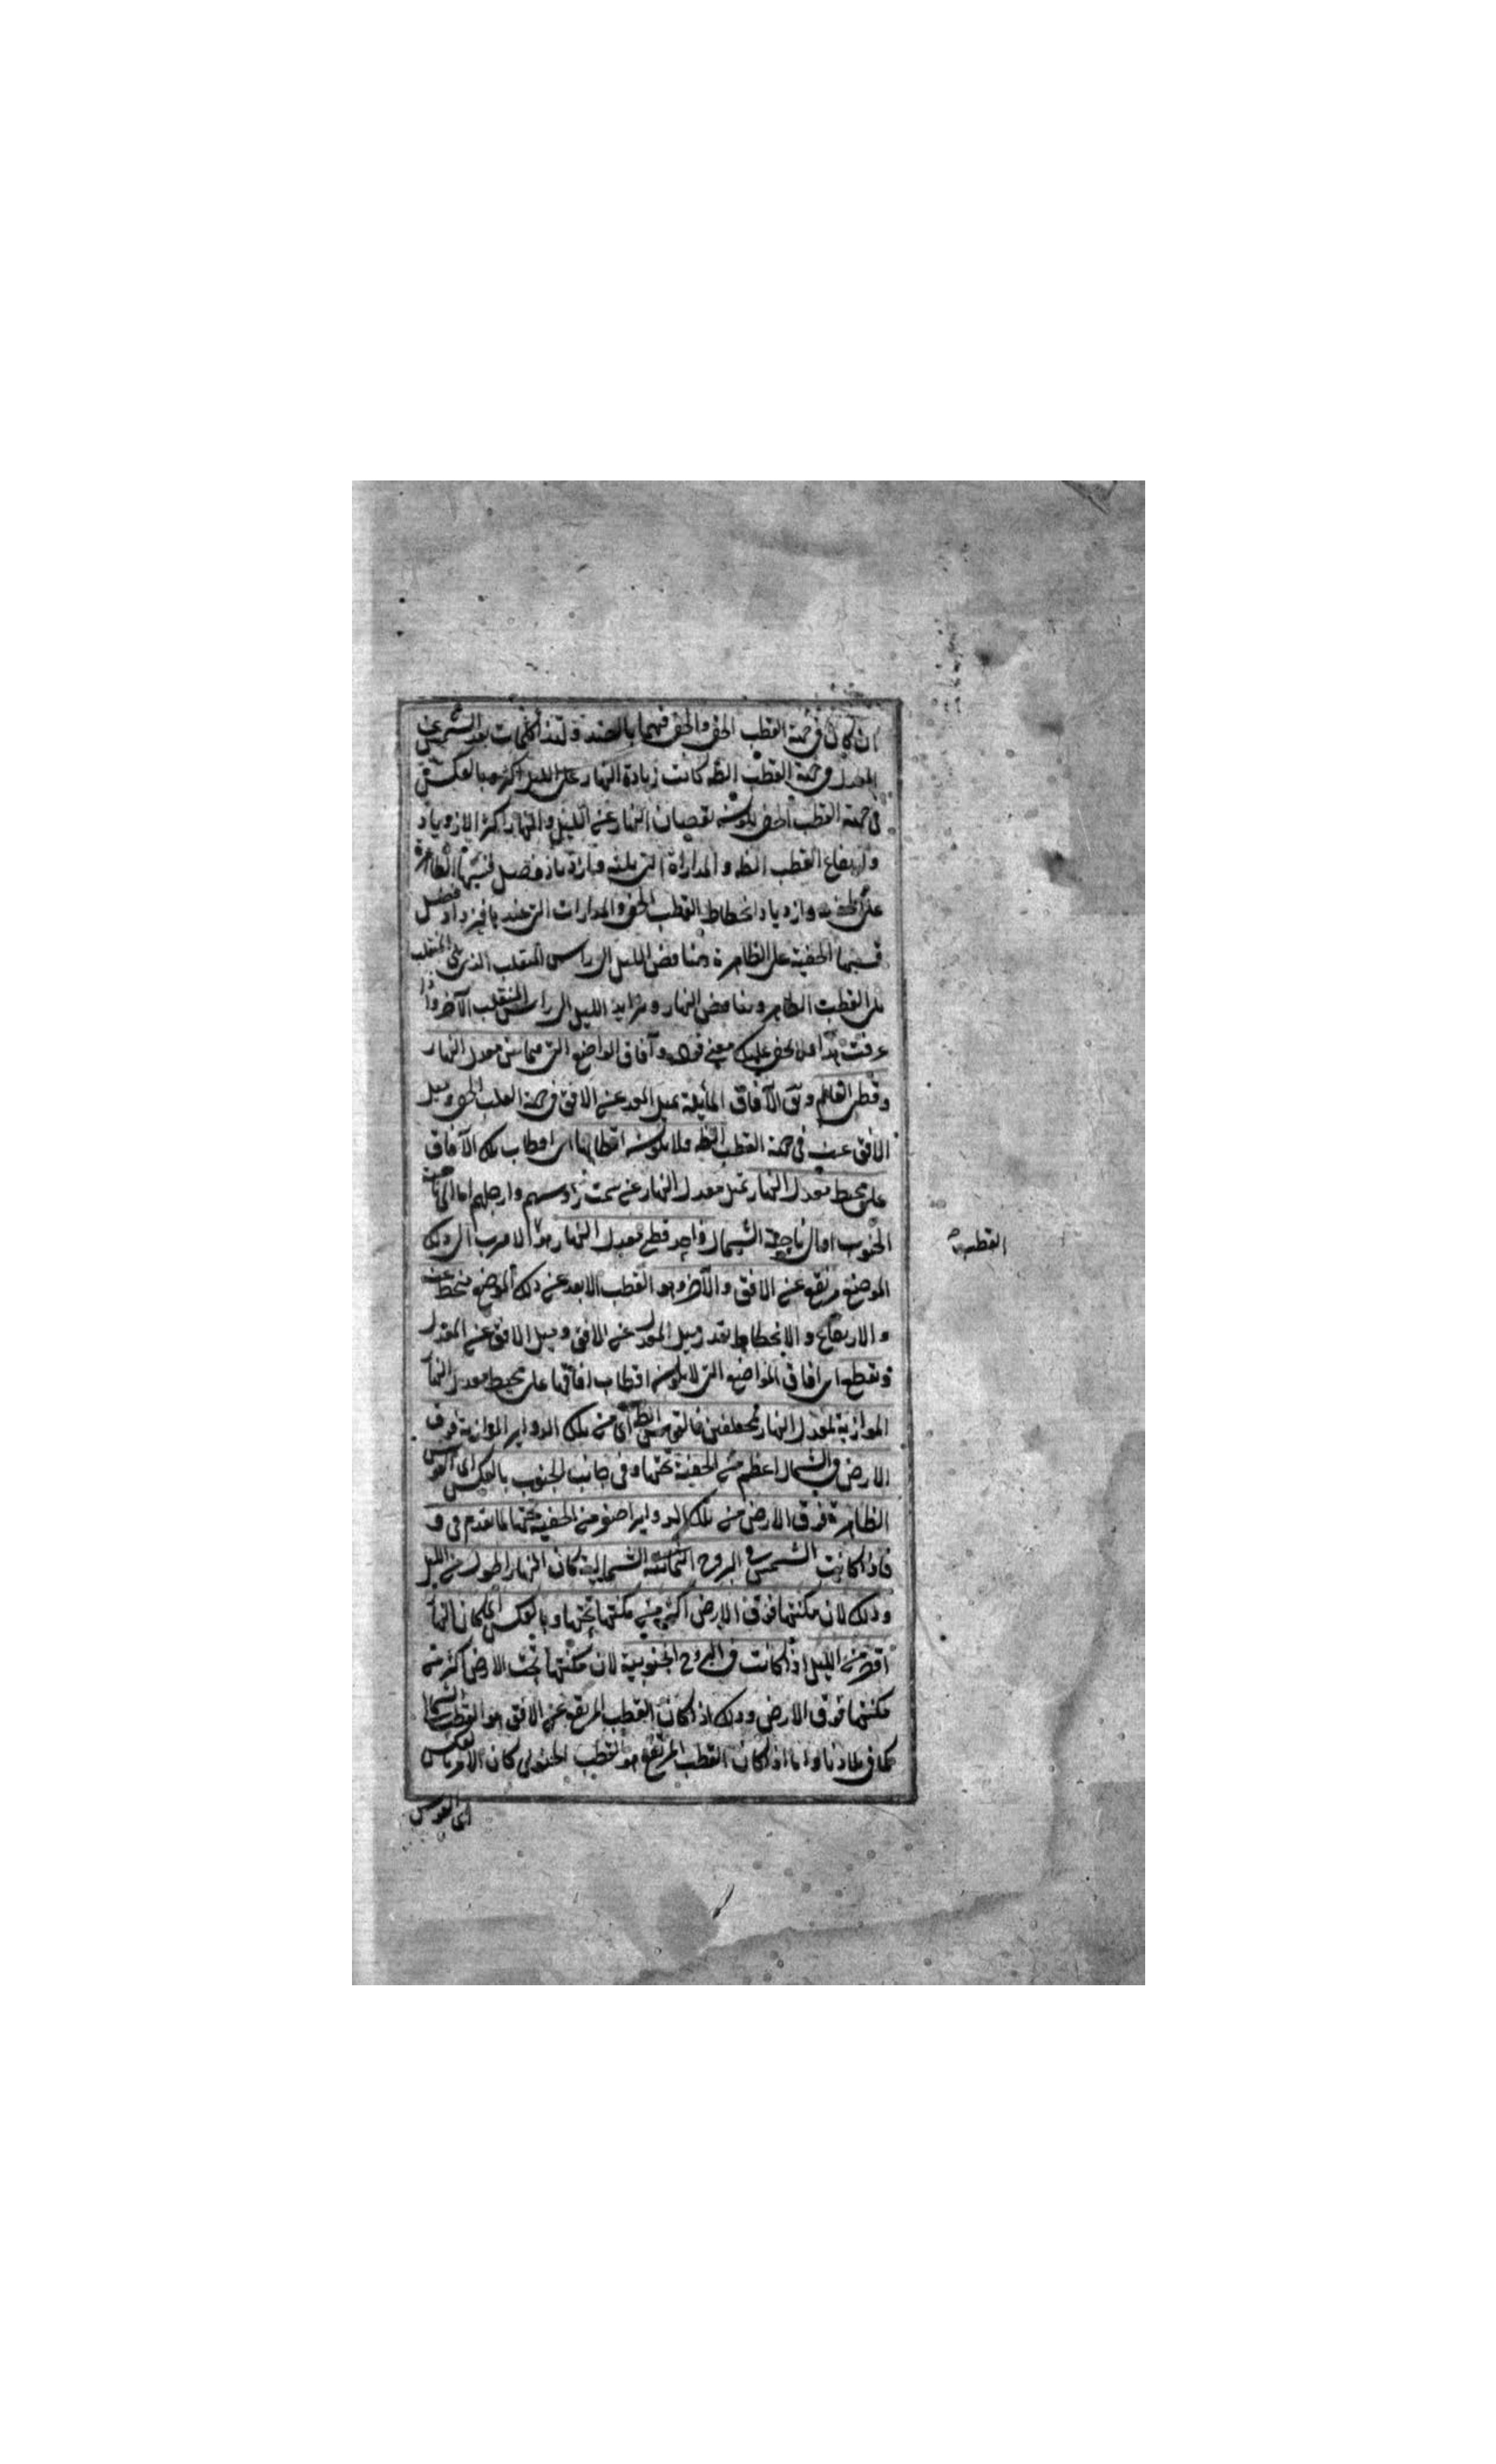 ان كان فى جهة القطب الخفى والخفى فيهما بالضد ولهذا كلما بعد الشمس عن
المعدل فى جهة القطب الظ كانت زيادة النهار على الليل اكثر وبالعكس
فى جهة القطب الخفى يكون نقصان النهار عن الليل والنهار اكثر لازدياد
وارتفاع القطب الظ والمدارات التى يليه فازدياد فضل قسيها الظاهرة
على الخفية وازدياد انحطاط القطب الخفى والمدارات التى عنده فيزداد فضل
قسيها الخفية على الظاهرة وتناقص الليل الى راس المنقلب الذى يلى المنقلب
يلى القطب الظاهر وتناقص النهار وتزايد الليل الى راس المنقلب الآخر واذا
عرفت هذا فلا يخفى عليك معنى قوله وآفاق المواضع التى بين معدل النهار
وقطبى العالم وهى الآفاق المايلة يميل المعدل عن الافق فى جهة القطب الخفى ويميل
الافق عنه فى جهة القطب الظ ولا يكون اقطابها اى اقطاب تلك الآفاق
على محيط معدل النهار يميل معدل النهار عن سمت رؤسهم وارجلهم اما الى ناحية
الجنوب او الى ناحية الشمال واحد قطبى معدل النهار هو الاقرب الى ذلك
القطب
الموضع مرتفع عن الافق والآخر وهو القطب الابعد عن ذلك الموضع منحط عنه
والارتفاع والانحطاط بقدر ميل المعدل عن الافق وميل الافق عن المعدل
وتقطع اى آفاق المواضع التى لا يكون اقطاب آفاقها على محيط معدل النهار
الموازية لمعدل النهار مختلفين فالقوس الظ اى من تلك الدواير الموازية فوق
الارض فى الشمال اعظم من الخفية تحتها وفى جانب الجنوب بالعكس اى القوس
الظاهرة فوق الارض من تلك الدواير اصغر من الخفية تحتها لما تقدم فى و
فاذا كانت الشمس فى البروج الشمالية كان النهار اطول من الليل
وذلك لان مكثها فوق الارض اكثر من مكثها تحتها وبالعكس اى كان النهار
اقصر من الليل اذا كانت فى البروج الجنوبية لان مكثها تحت الارض اكثر من
مكثها فوق الارض وذلك اذا كان القطب المرتفع عن الافق هو القطب الشمالى
كما فى بلادنا واما اذا كان القطب المرتفع هو القطب الجنوبى كان الامر بالعكس
اى القوس